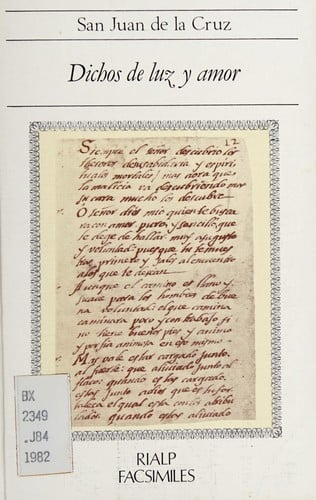 San Juan de la Cruz
Dichos de luz y amor
12
Siempre el señor descubrio los
tesoros de su sabiduria y espiri
tu a los mortales / mas aora que
la malicia va descubriendo mas
su cara mucho los descubre
O señor dios mio quien te busca
ra con amor puro, y sencillo que
te dexe de hallar muy a su gusto
y voluntad pues que tu te mues
tras primero y sales al encuentro
a los que te desean
Aunque el camino es llano y
suave para los hombres de bue
na voluntad: el que camina
caminara poco y con trabajo si
no tiene buenos pies y animo
y porfia animosa en eso mismo
Mas vale estar cargado junto
al fuerte: que aliviado junto al
flaco: quando estas cargado
estas junto a dios que es tu for
taleza el qual esta con los atribu
lados. quando estas aliviado
BX
2349
.J84
1982
RIALP
FACSIMILES